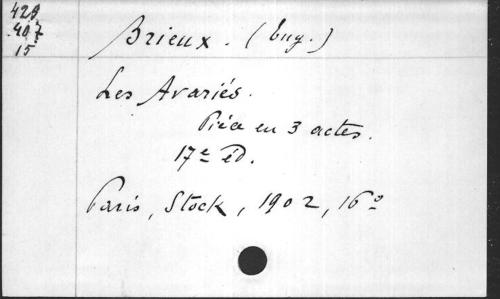 429
407
15
Brieux. (Eug.)
Les Avariés.
Pièce en 3 actes.
17e éd.
Paris, Stock, 1902, 16o